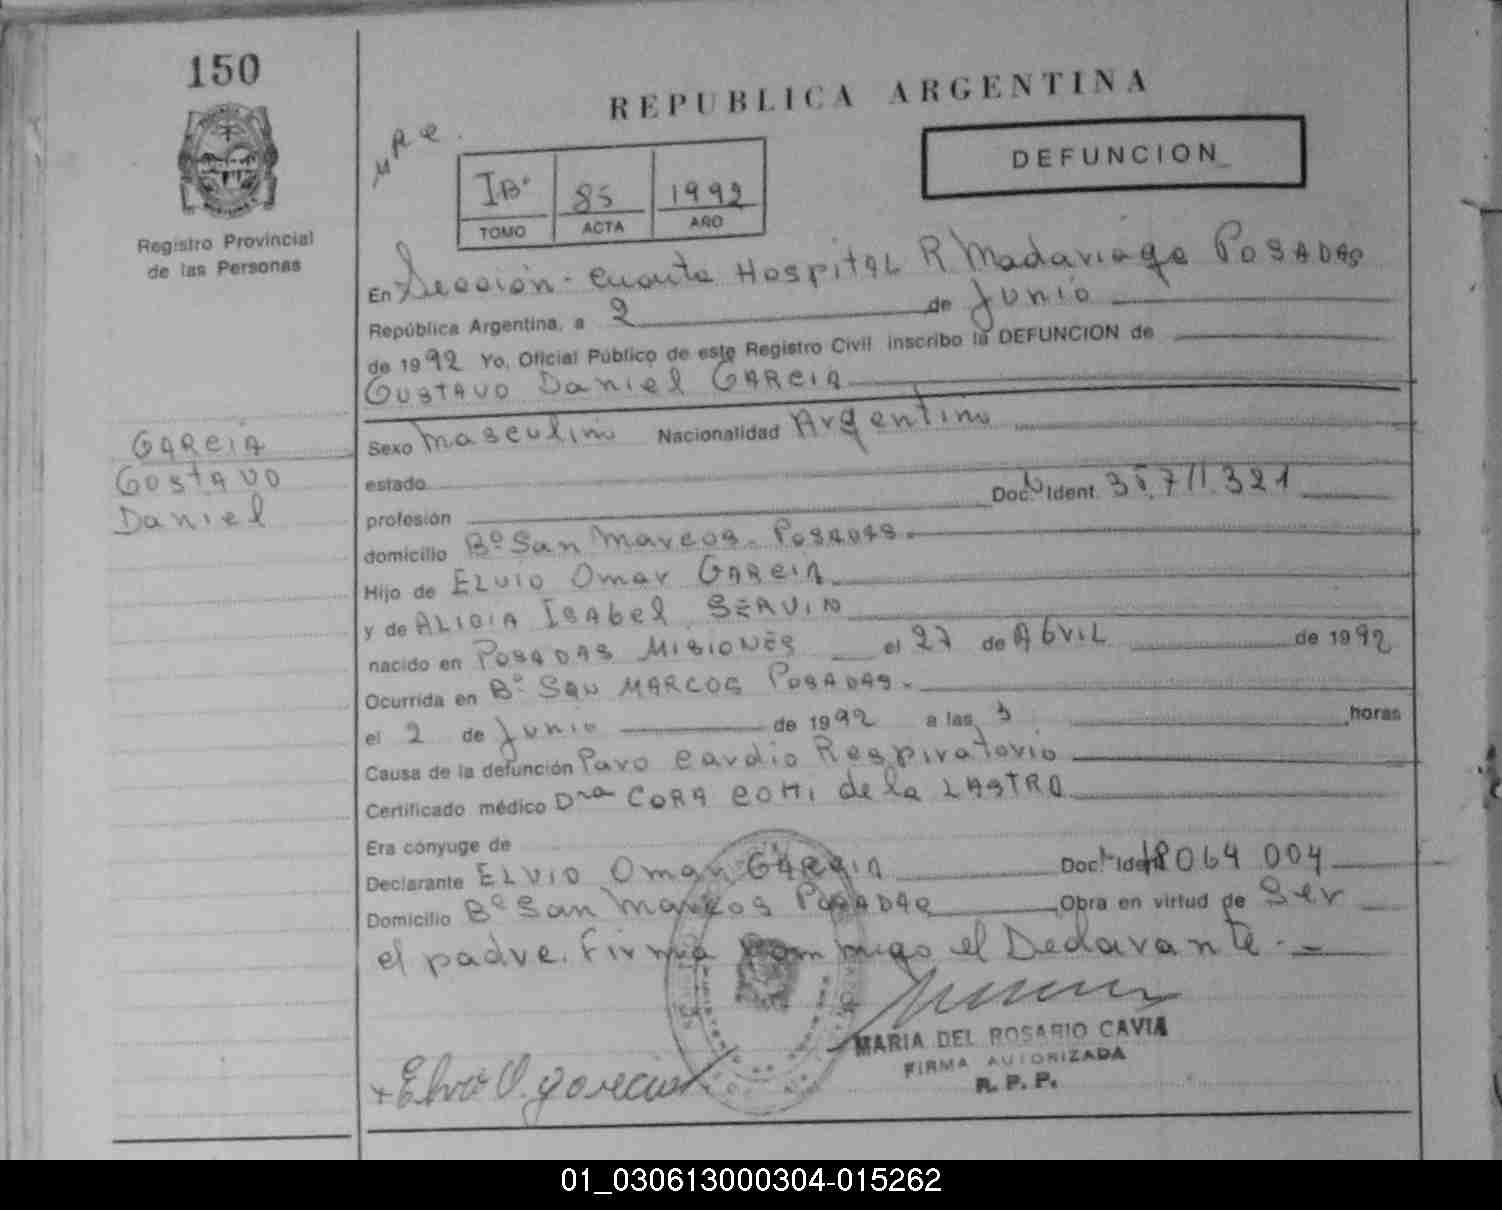 150
REPUBLICA ARGENTINA
DEFUNCION
Registro Provincial
de las Personas
IBº 85 1992
TOMO ACTA AÑO
En Sección - Cuarta Hospital R Madariaga Posadas
República Argentina, a 2 de Junio
de 1992 Yo, Oficial Público de este Registro Civil inscribo la DEFUNCION de
Gustavo Daniel Garcia
Garcia
Gustavo
Daniel
Sexo masculino Nacionalidad Argentino
estado
profesión Doc. Ident. 711.321
domicilio Bº San Marcos - Posadas -
Hijo de Elvio Omar Garcia
y de Alicia Isabel Servin
nacido en Posadas Misiones el 27 de Abril de 1992
Ocurrida en Bº San Marcos Posadas -
el 2 de Junio de 1992 a las 3 horas
Causa de la defunción Paro Cardio Respiratorio
Certificado médico Dra Cora de la Lastra
Era cónyuge de
Declarante Elvio Omar Garcia Doc. Ident. 18064 004
Domicilio Bº San Marcos Posadas Obra en virtud de Ser
el padre. Firma conmigo el Declarante. =
MARIA DEL ROSARIO CAVIA
FIRMA AUTORIZADA
R. P. P.
Elvio O. Garcia
01_030613000304-015262